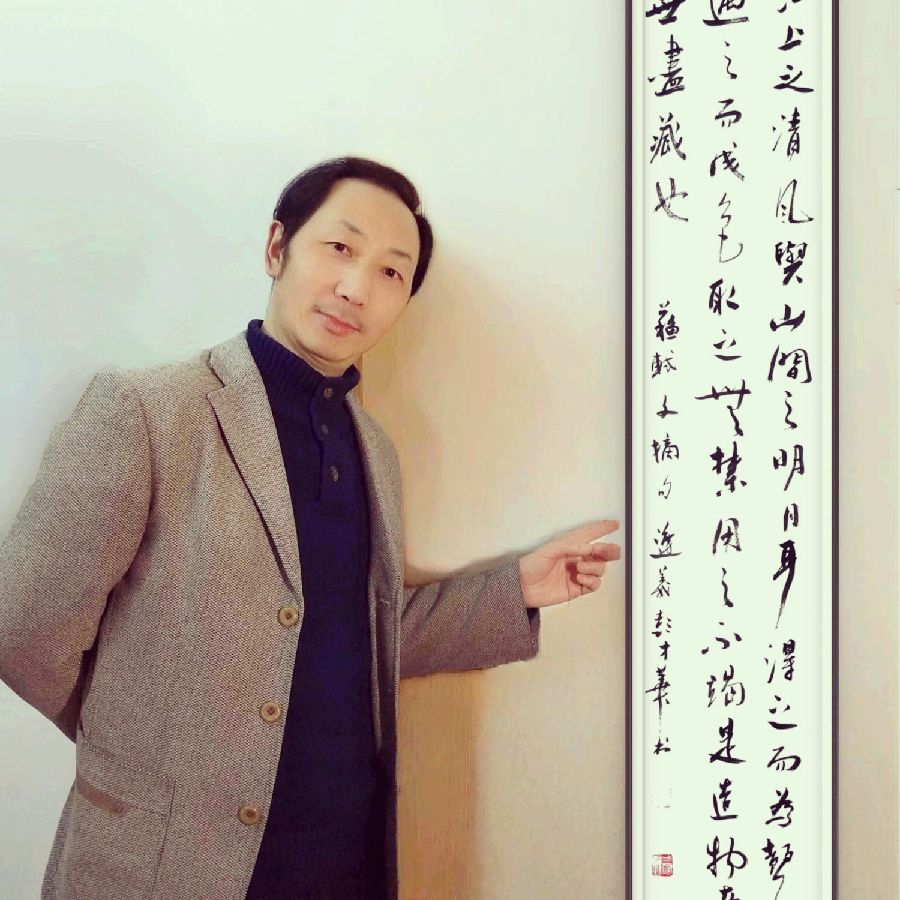 上之清風與山間之明月耳得之而為聲
遇之而成色取之無禁用之不竭是造物
無盡藏也 蘇軾文摘句 遵義彭才華書